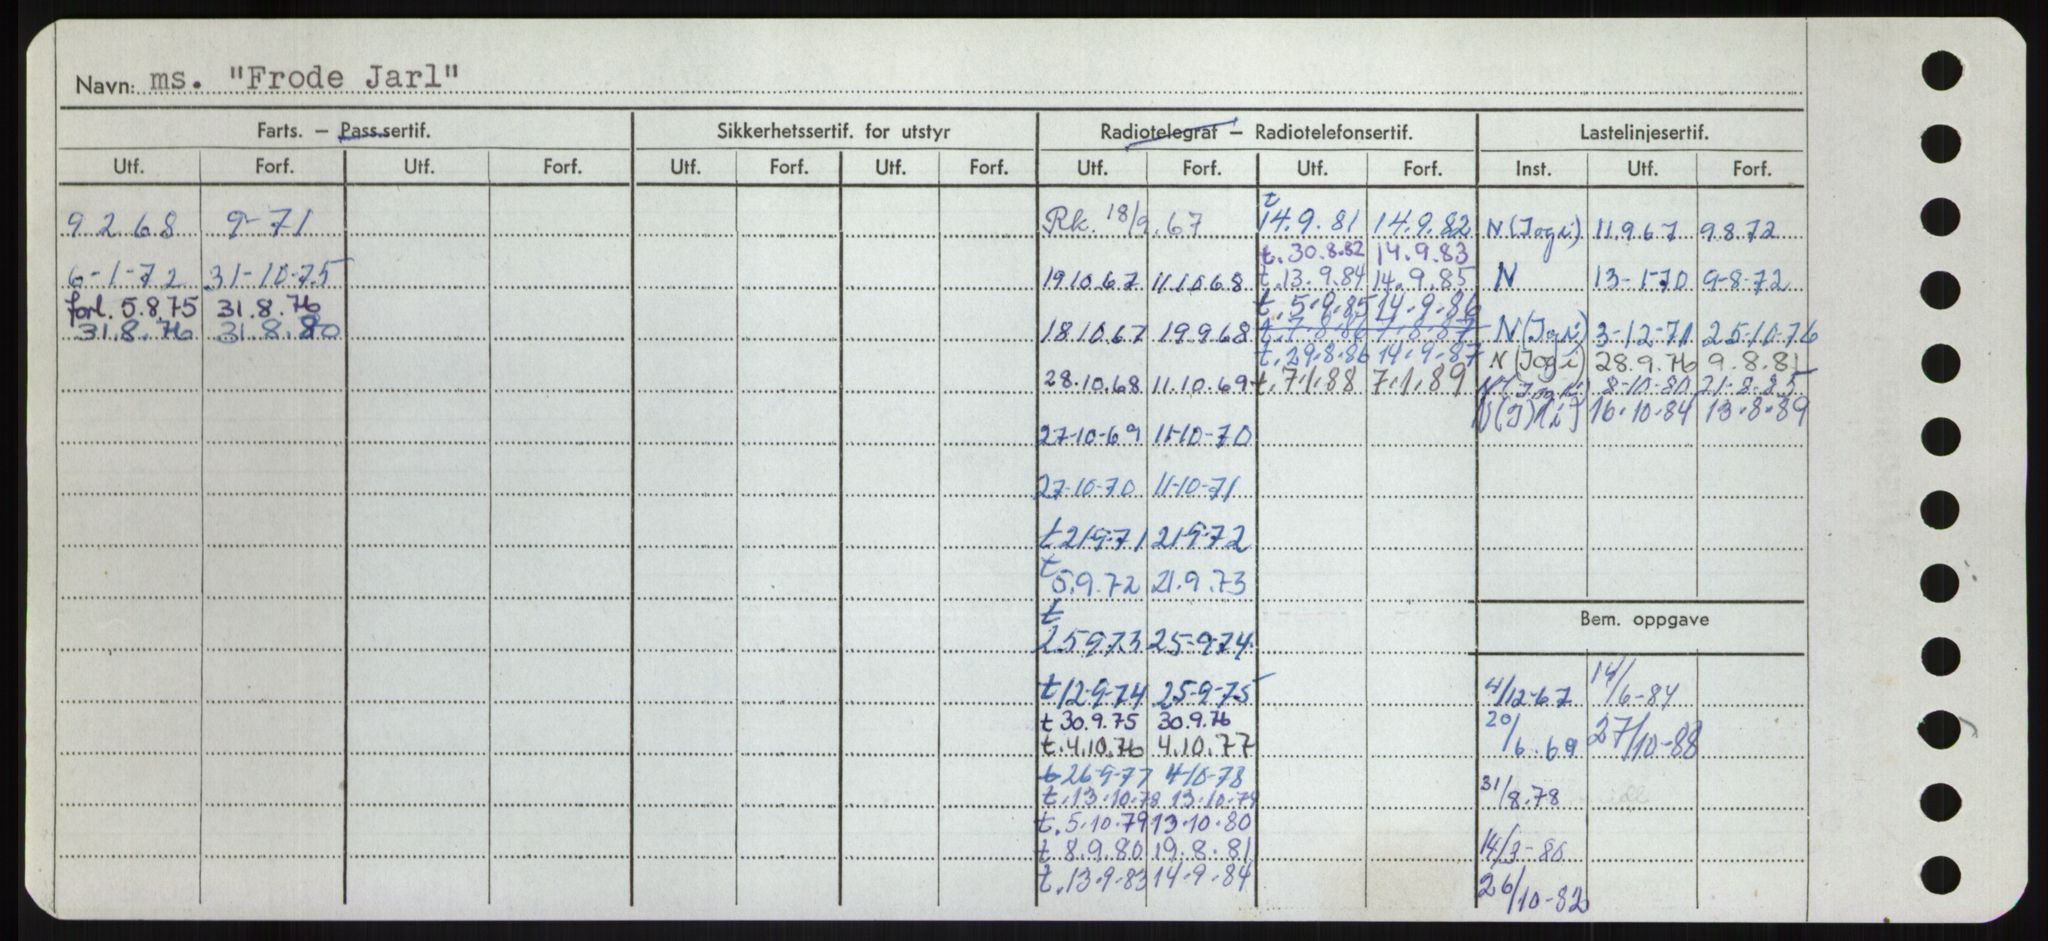 Navn: ms. "Frode Jarl"
Farts. – Pass.sertif. Sikkerhetssertif. for utstyr Radiotelegraf – Radiotelefonsertif. Lastelinjesertif.
Utf. Forf. Utf. Forf. Utf. Forf. Utf. Forf. Utf. Forf. Utf. Forf. Inst. Utf. Forf.
9 2 68 9-71 Rk. 18/9.67 t 14.9.81 14.9.82 N (Jogi) 11.9.67 9.8.72
t. 30.8.82 14.9.83
6-1-72 31-10-75 19.10.67 11.10.68 t.13.9.84 14.9.85 N 13-1-70 9-8-72
forl. 5.8.75 31.8.76 t. 5.9.85 14.9.86
31.8.76 31.8.80 18.10.67 19.9.68 t.7.8.86 7.8.87 N (Jogi) 3-12-71 25-10-76
t.29.8.86 14.9.87 N (Jogi) 28.9.76 9.8.81
28.10.68 11.10.69 t.7.1.88 7.1.89 N (Jogi) 8-10-80 21-8-85
16.10.84 13.8.89
27-10-69 11-10-70
27-10-70 11-10-71
t 21-9-71 21-9-72
t 5.9.72 21.9.73
Bem. oppgave
t 25 9 73 25-9-74
t 12-9-74 25-9-75 4/12-67 14/6-84
t 30.9.75 30.9.76
t. 4.10.76 4.10.77 20/6.69 27/10-88
t 26-9-77 4-10-78
t. 13.10.78 13.10.79 31/8.78
t. 5.10.79 13.10.80
t 8.9.80 19.8.81 14/3-80
t. 13.9.83 14.9.84 26/10-82